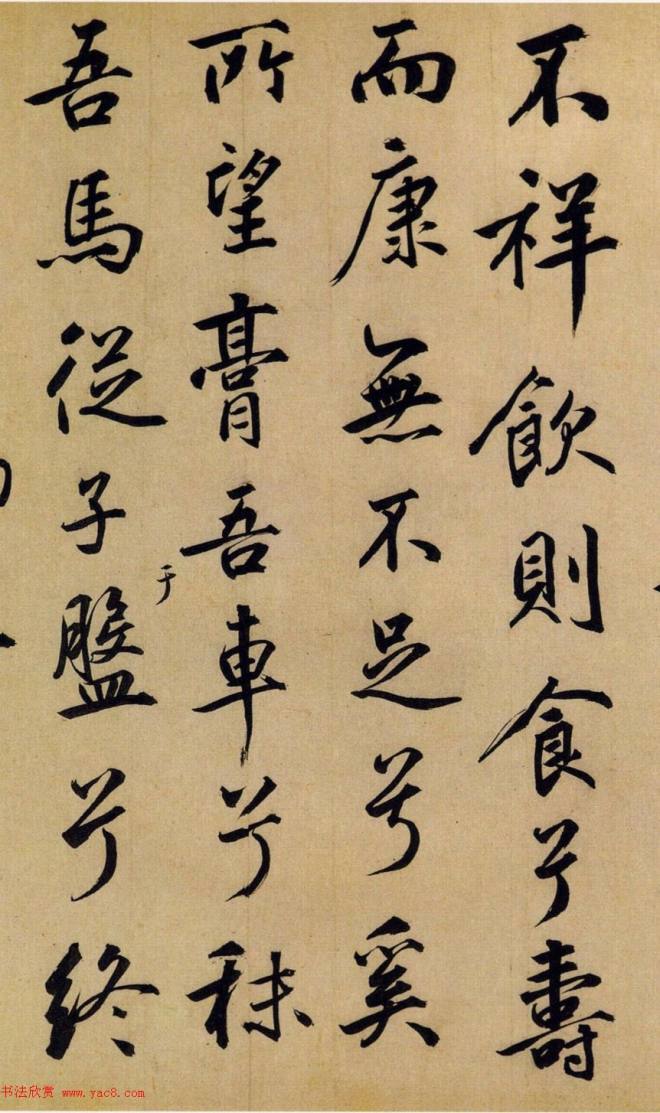 不祥飲則食兮壽
而康無不足兮奚
所望膏吾車兮秣
吾馬從子于盤兮終
书法欣赏 www.yac8.com